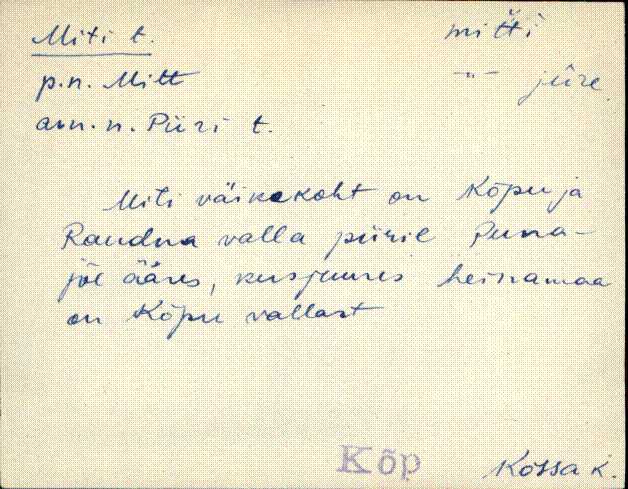 Miti t.
mitti
p.n. Mitt
—"— jüre
am.n. Piiri t.
Miti väikekoht on Kõpu ja
Raudna valla piiril Puna-
jõe ääres, kusjuures heinamaa
on Kõpu vallast
Kõp
Kossa k.